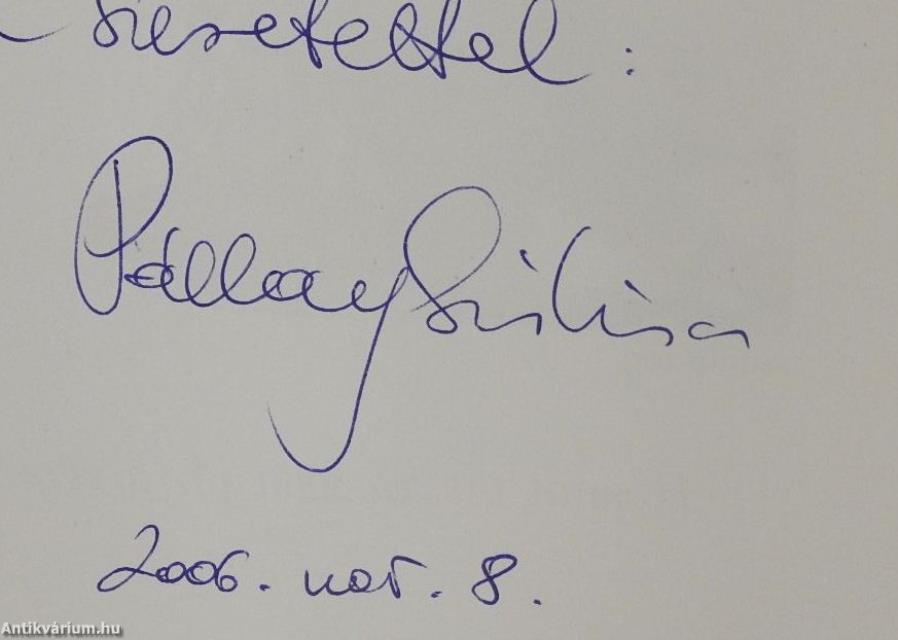 szeretettel :
Pállay Szilvia
2006. nov. 8.
Antikvárium.hu